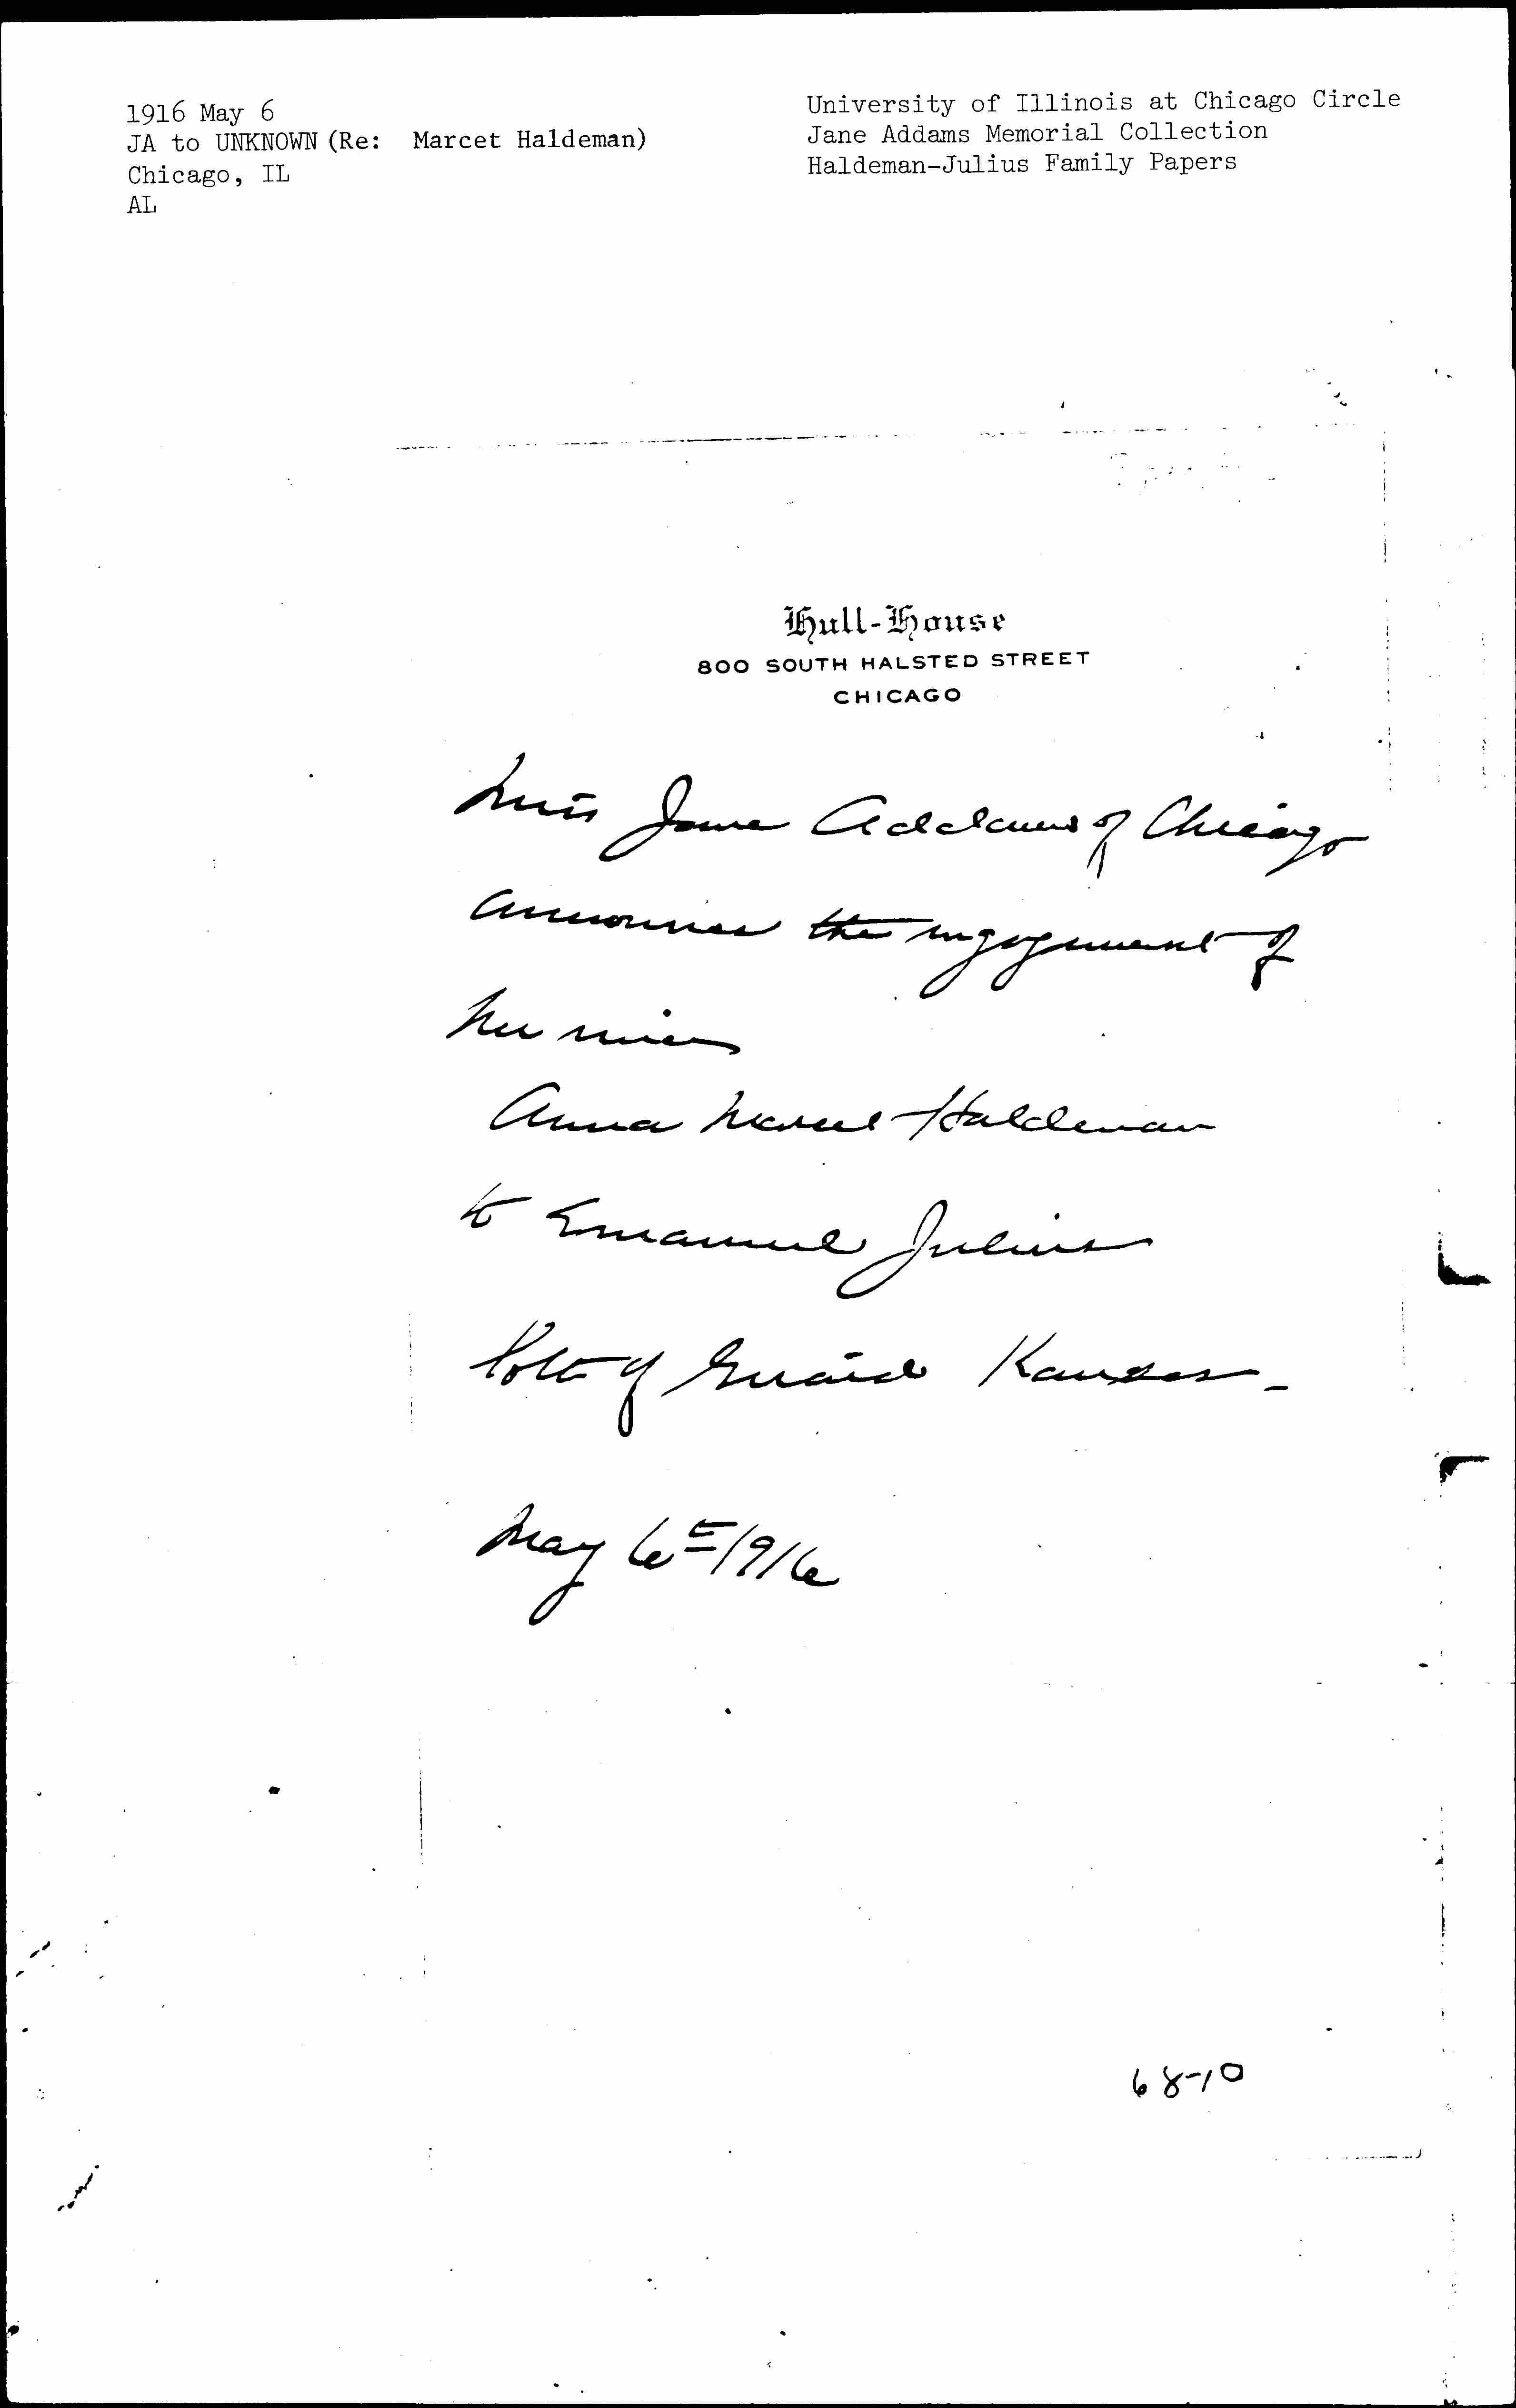 1916 May 6
JA to UNKNOWN (Re: Marcet Haldeman)
Chicago, IL
AL
University of Illinois at Chicago Circle
Jane Addams Memorial Collection
Haldeman-Julius Family Papers
Hull-House
800 SOUTH HALSTED STREET
CHICAGO
Miss Jane Addams of Chicago
announces the engagement of
her niece
Anna Marcet Haldeman
to Emanuel Julius
both of Girard Kansas -
May 6th 1916
68-10